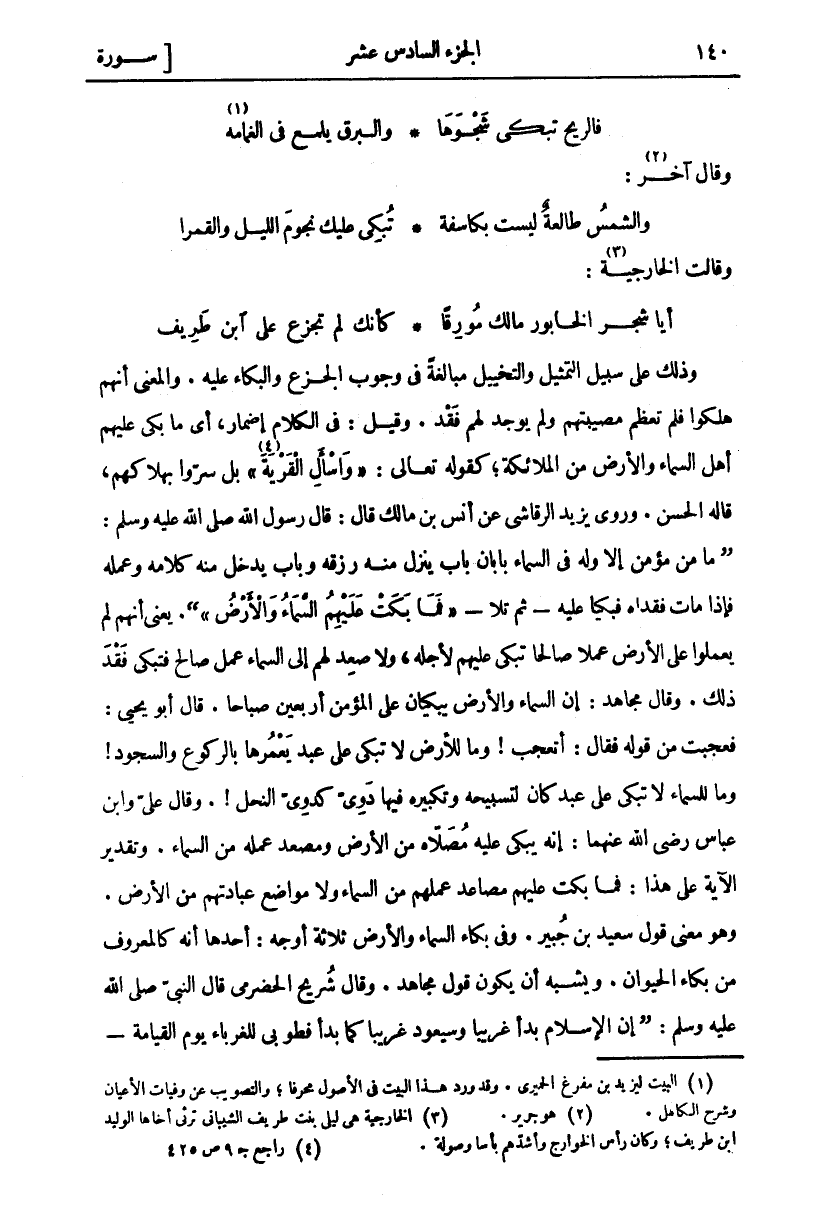 ١٤٠ الجزء السادس عشر [ ســورة
فالريح تبــكى شَجْــوَهَا * والــبرق يلمــع فى الغمامه (١)
وقال آخــر (٢) :
والشمسُ طالعةٌ ليست بكاسفة * تُبكِى عليك نجومَ الليــل والقمرا
وقالت الخارجيــة (٣) :
أيا شجــر الخــابور مالك مُورِقًا * كأنك لم تجزع على آبن طَرِيف
وذلك على سبيل التمثيل والتخييل مبالغةً فى وجوب الجــزع والبكاء عليه . والمعنى أنهم
هلكوا فلم تعظم مصيبتهم ولم يوجد لهم فَقْد . وقيــل : فى الكلام إضمار، أى ما بكى عليهم
أهل السماء والأرض من الملائكة؛ كقوله تعــالى : « وَاسْأَلِ الْقَرْيَةَ (٤) » بل سرّوا بهلاكهم،
قاله الحسن . وروى يزيد الرقاشى عن أنس بن مالك قال : قال رسول الله صلى الله عليه وسلم :
” ما من مؤمن إلا وله فى السماء بابان باب ينزل منــه رزقه وباب يدخل منه كلامه وعمله
فإذا مات فقداه فبكيا عليه — ثم تلا — « فَمَــا بَكَتْ عَلَيْهِمُ السَّمَاءُ وَالْأَرْضُ »“. يعنى أنهم لم
يعملوا على الأرض عملا صالحا تبكى عليهم لأجله، ولا صعِد لهم إلى السماء عمل صالح فتبكى فَقْدَ
ذلك . وقال مجاهد : إن السماء والأرض يبكيان على المؤمن أربعين صباحا . قال أبو يحيى :
فعجبت من قوله فقال : أتعجب ! وما للأرض لا تبكى على عبد يَعْمُرها بالركوع والسجود !
وما للسماء لا تبكى على عبد كان لتسبيحه وتكبيره فيها دَوِىّ كدوِىّ النحل ! . وقال علىّ وابن
عباس رضى الله عنهما : إنه يبكى عليه مُصَلّاه من الأرض ومصعد عمله من السماء . وتقدير
الآية على هذا : فمــا بكت عليهم مصاعد عملهم من السماء ولا مواضع عبادتهم من الأرض .
وهو معنى قول سعيد بن جُبير . وفى بكاء السماء والأرض ثلاثة أوجه : أحدها أنه كالمعروف
من بكاء الحيوان . ويشبــه أن يكون قول مجاهد . وقال شُريح الحضرمى قال النبىّ صلى الله
عليه وسلم : ” إن الإســلام بدأ غريبا وسيعود غريبا كما بدأ فطوبى للغرباء يوم القيامة —
(١) البيت ليزيد بن مفرغ الحميرى . وقد ورد هــذا البيت فى الأصول محرفا ؛ والتصويب عن وفيات الأعيان
وشرح الكامل . (٢) هو جرير . (٣) الخارجية هى ليلى بنت طريف الشيبانى ترثى أخاها الوليد
ابن طريف؛ وكان رأس الخوارج وأشدّهم بأسا وصولة . (٤) راجع جـ ٩ ص ٢٤٥